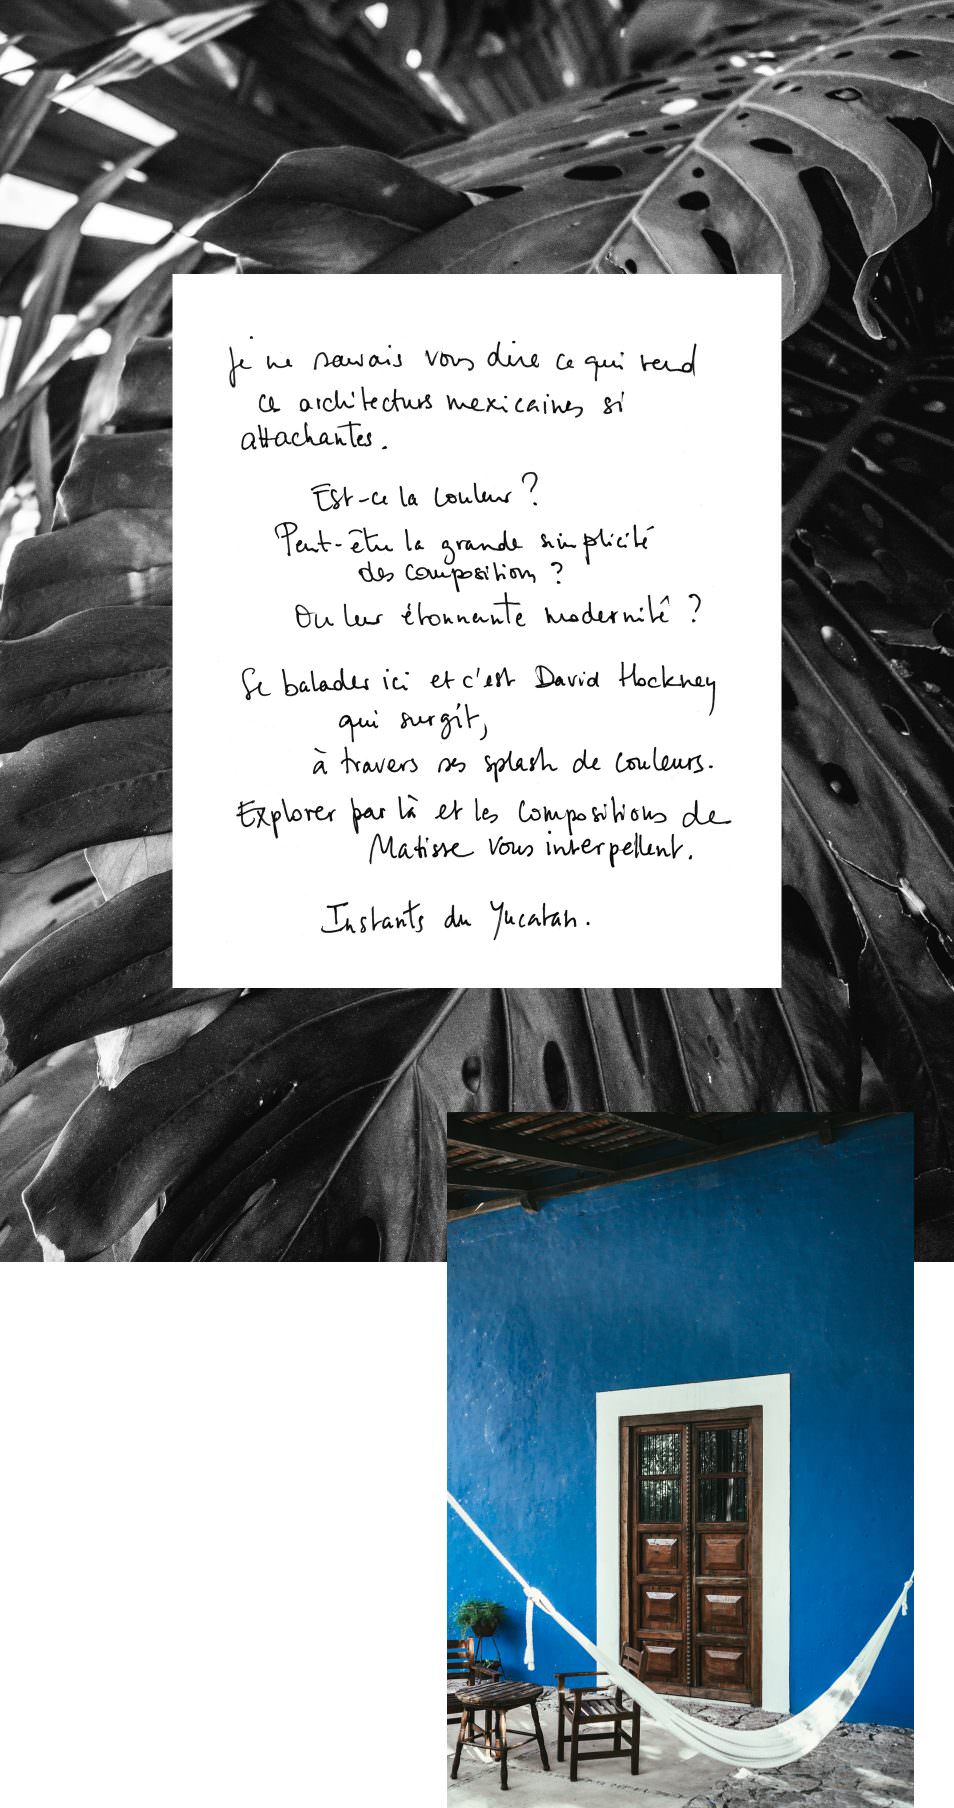 Je ne saurais vous dire ce qui rend
ces architectures mexicaines si
attachantes.
Est-ce la couleur ?
Peut-être la grande simplicité
des compositions ?
Ou leur étonnante modernité ?
Se balader ici et c'est David Hockney
qui surgit,
à travers ses splash de couleurs.
Explorer par là et les compositions de
Matisse vous interpellent.
Instants du Yucatan.